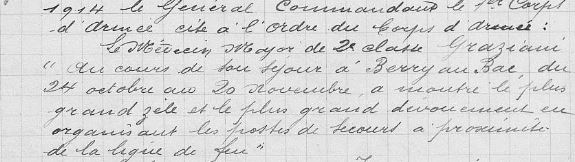 1914 le Général Commandant le 1er Corps
d'Armée cite à l'ordre du Corps d'Armée :
Le Médecin Major de 2e classe Graziani
"Au cours de son séjour à Berry au Bac, du
24 octobre au 20 novembre, a montré le plus
grand zèle et le plus grand dévouement en
organisant les postes de secours à proximité
de la ligne de feu"